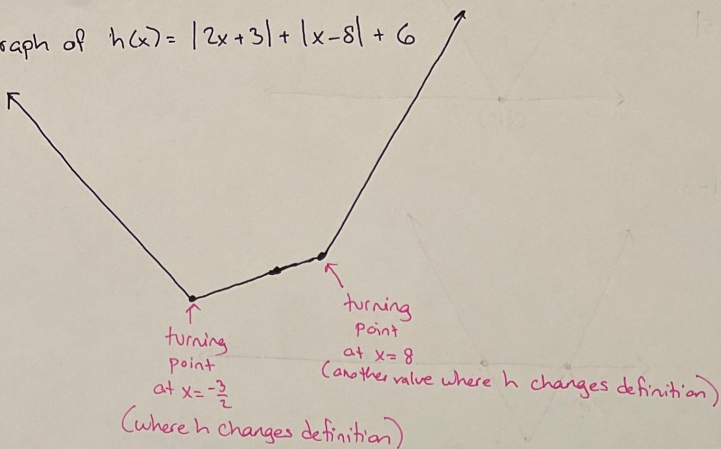 raph of h(x) = |2x+3| + |x-8| + 6
turning
point
at x = -3/2
(where h changes definition)
turning
point
at x = 8
(another value where h changes definition)